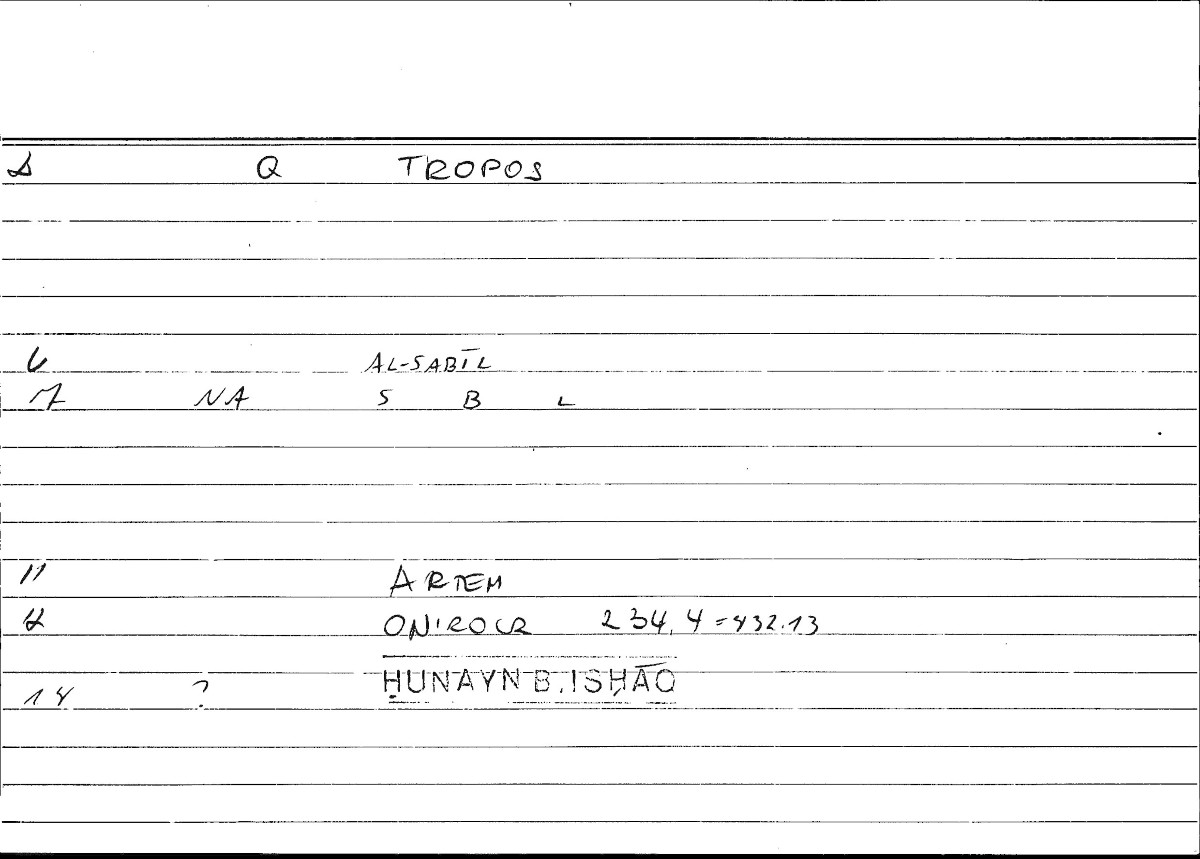 Q TROPOS
6 AL-SABĪL
7 NA S B L
11 ARTEM
12 ONIROCR 234,4=432.13
14 ? ḤUNAYN B. ISḤĀQ